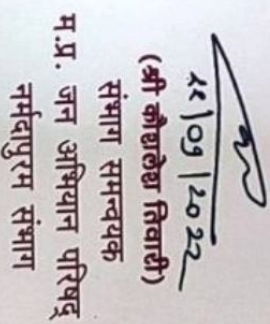 15/09/2022
(श्री कौशलेश तिवारी)
संभाग समन्वयक
म.प्र. जन अभियान परिषद्
नर्मदापुरम संभाग